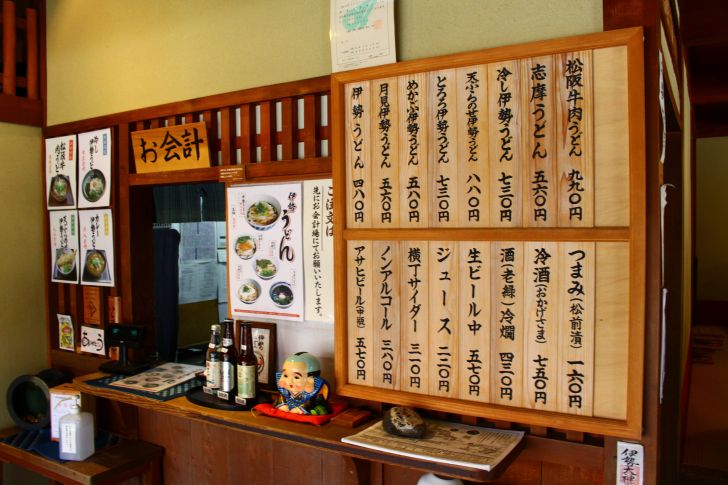 松阪牛肉うどん 九九〇円
志摩うどん 五六〇円
冷し伊勢うどん 七三〇円
天ぷらのせ伊勢うどん 八八〇円
とろろ伊勢うどん 七三〇円
めかぶ伊勢うどん 五八〇円
月見伊勢うどん 五六〇円
伊勢うどん 四八〇円
つまみ(松前漬) 一六〇円
冷酒(おかげさま) 七五〇円
酒(老緑)冷燗 四三〇円
生ビール中 五七〇円
ジュース 二二〇円
横丁サイダー 三一〇円
ノンアルコール 三八〇円
アサヒビール(中瓶) 五七〇円
お会計
ご注文は
先にお会計場にてお願いいたします。
伊勢
うどん
冷し伊勢うどん
松阪牛
肉うどん